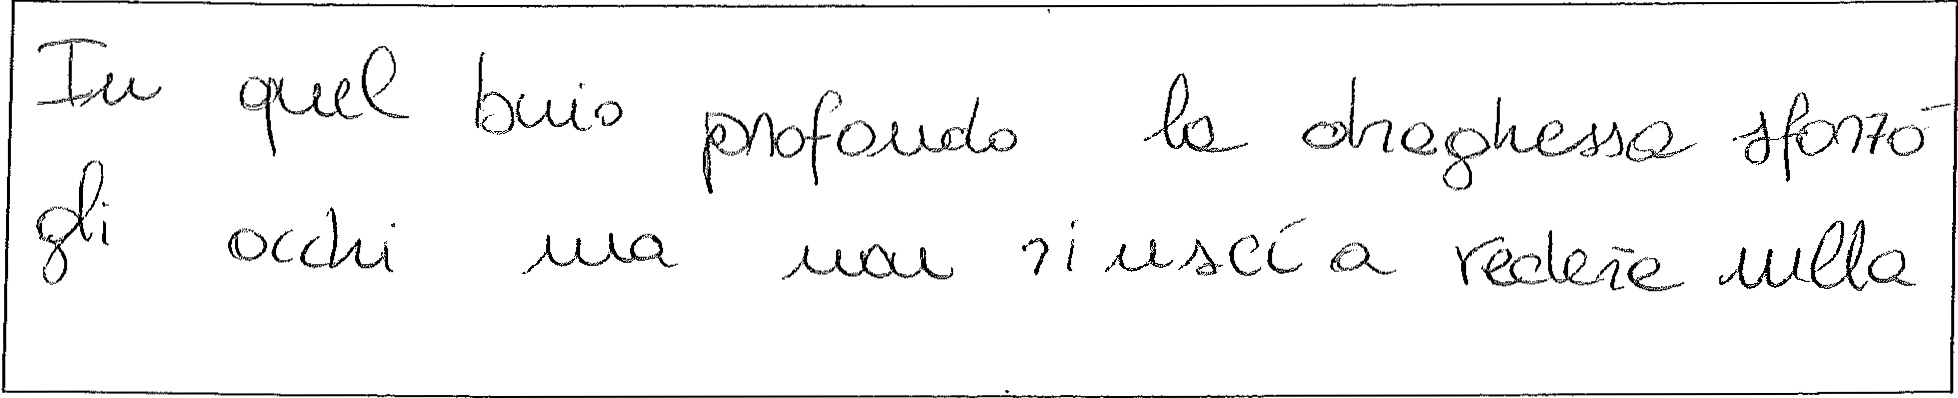 In quel buio profondo la draghessa sforzò
gli occhi ma non riuscì a vedere nulla